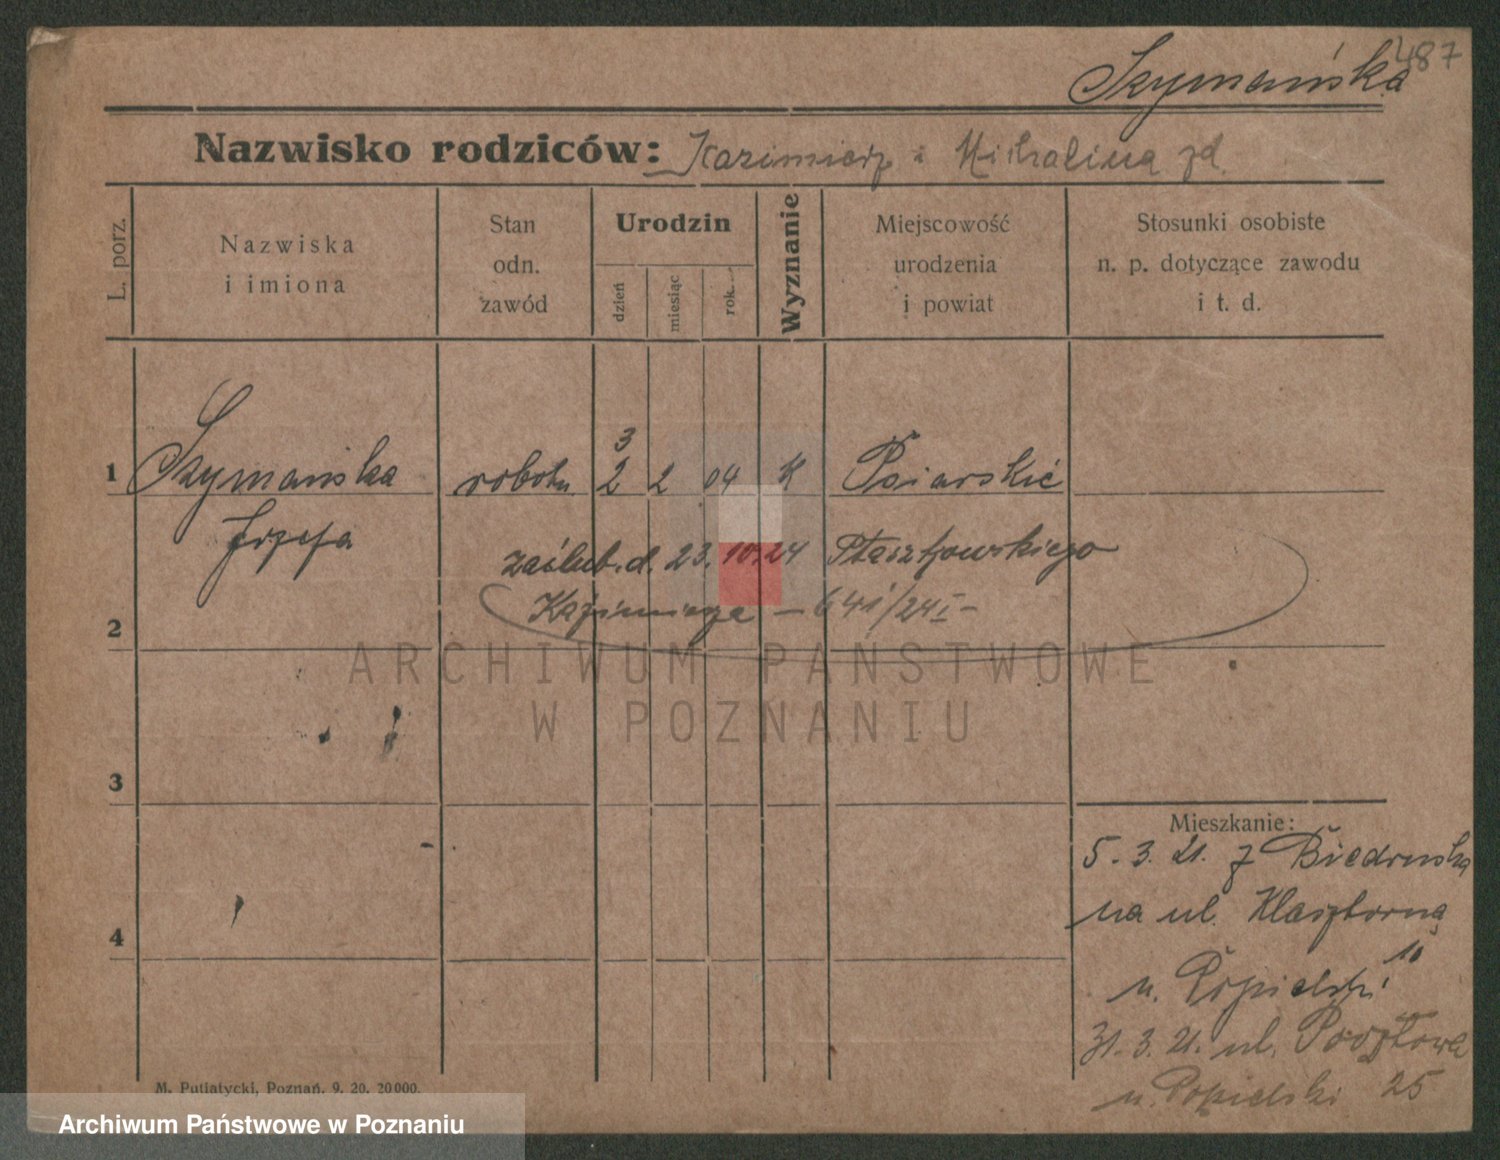 487
Szymańska
Nazwisko rodziców: Kazimierz i Michalina zd.
L. porz.
Nazwiska
i imiona
Stan
odn.
zawód
Urodzin
dzień
miesiąc
rok
Wyznanie
Miejscowość
urodzenia
i powiat
Stosunki osobiste
n. p. dotyczące zawodu
i t. d.
3
1 Szymańska robotn. 2 2 04 K Psiarskie
Józefa
zaślub. d. 23.10.24 Ptaszkowskiego
2 Kazimierza — 641/24 I —
ARCHIWUM PAŃSTWOWE
W POZNANIU
3
Mieszkanie:
5. 3. 21. z Biedruska
na ul. Klasztorną
4
10
u. Popielski
31. 3. 21. ul. Pocztowa
u. Popielski 25
M. Putiatycki, Poznań. 9. 20. 20000.
Archiwum Państwowe w Poznaniu